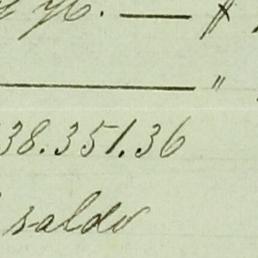 — $
— "
38.351.36
saldo